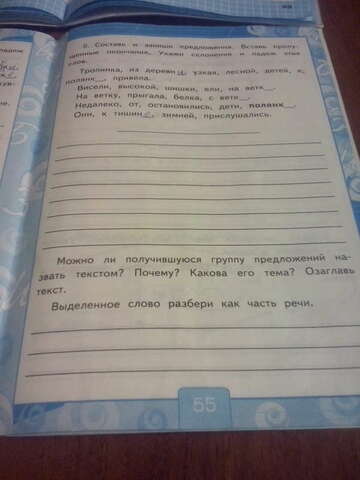 9. Составь и запиши предложения. Вставь пропу-
щенные окончания. Укажи склонение и падеж этих
слов.
Тропинка, из деревни, узкая, лесной, детей, к,
полянк__, привела.
Висели, высокой, шишки, ели, на ветк__.
На ветку, прыгала, белка, с ветк__.
Недалеко, от, остановились, дети, полянк__.
Они, к тишине, зимней, прислушались.
Можно ли получившуюся группу предложений на-
звать текстом? Почему? Какова его тема? Озаглавь
текст.
Выделенное слово разбери как часть речи.
55